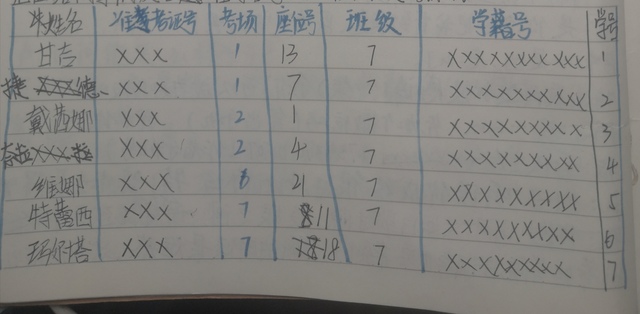 姓名 准考证号 考场 座位号 班级 学藉号 学号
甘吉 XXX 1 13 7 XXXXXXXXXX 1
捷德 XXX 1 7 7 XXXXXXXXXX 2
戴茜娜 XXX 2 1 7 XXXXXXXXX 3
XXX 2 4 7 XXXXXXXXX 4
维娜 XXX 6 21 7 XXXXXXXXX 5
特蕾西 XXX 7 11 7 XXXXXXXXX 6
玛尔塔 XXX 7 18 7 XXXXXXXXX 7